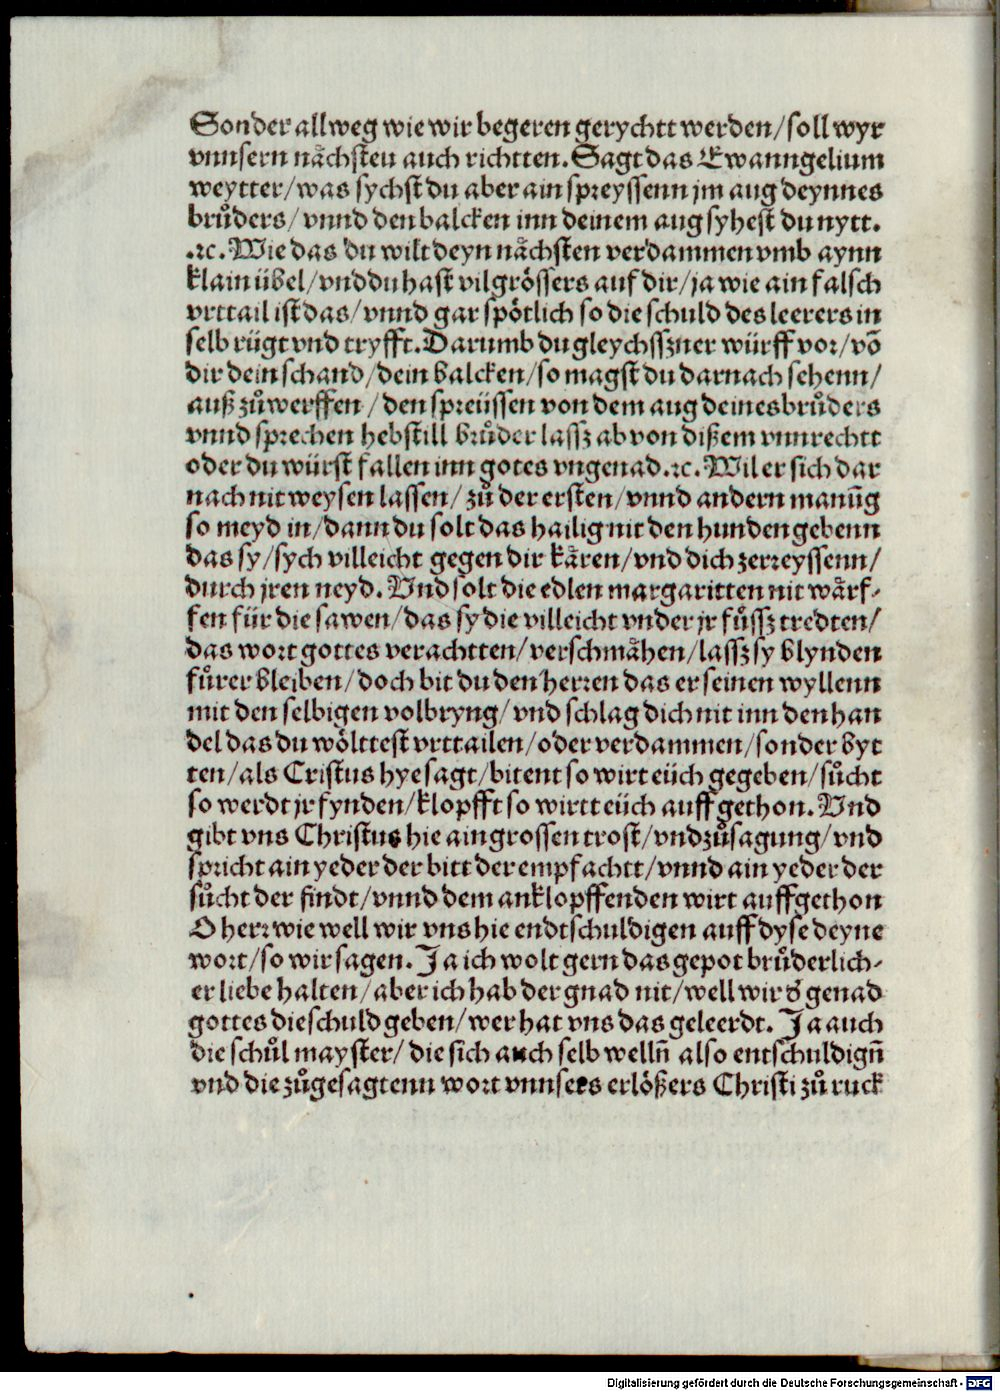 Sonder allweg wie wir begeren gerychtt werden/soll wyr
vnnsern nåchsten auch richtten. Sagt das Ewanngelium
weytter/was sychst du aber ain spreyssenn jm aug deynnes
brůders/vnnd den balcken inn deinem aug syhest du nytt.
.ꝛc. Wie das du wilt deyn nåchsten verdammen vmb aynn
klain übel/vnd du hast vil grössers auf dir/ja wie ain falsch
vrttail ist das/vnnd gar spötlich so die schuld des leerers in
selb rügt vnd tryfft. Darumb du gleychsszner würff vor/võ
dir dein schand/dein balcken/so magst du darnach sehenn/
auß zůwerffen/den spreüssen von dem aug deines brůders
vnnd sprechen heb still brůder lassz ab von dißem vnnrechtt
oder du würst fallen inn gotes vngenad.ꝛc. Wil er sich dar
nach nit weysen lassen/zů der ersten/vnnd andern manūg
so meyd in/dann du solt das hailig nit den hunden gebenn
das sy/sych villeicht gegen dir kåren/vnd dich zerreyssenn/
durch jren neyd. Vnd solt die edlen margaritten nit wårf-
fen für die sawen/das sy die villeicht vnder jr fůssz tredten/
das wort gottes verachtten/verschmåhen/lassz sy blynden
fůrer bleiben/doch bit du den herren das er seinen wyllenn
mit den selbigen volbryng/vnd schlag dich nit inn den han
del das du wölttest vrttailen/oder verdammen/sonder byt
ten/als Cristus hye sagt/bitent so wirt eüch gegeben/sůcht
so werdt jr fynden/klopfft so wirtt eüch auff gethon. Vnd
gibt vns Christus hie ain grossen trost/vnd zůsagung/vnd
spricht ain yeder der bitt der empfachtt/vnnd ain yeder der
sůcht der findt/vnnd dem anklopffenden wirt auffgethon
O herr wie well wir vns hie endtschuldigen auff dyse deyne
wort/so wir sagen. Ja ich wolt gern das gepot brůderlich-
er liebe halten/aber ich hab der gnad nit/well wir đ genad
gottes die schuld geben/wer hat vns das geleerdt. Ja auch
die schůl mayster/die sich auch selb welln̄ also entschuldign̄
vnd die zůgesagtenn wort vnnsers erlößers Christi zů ruck
Digitalisierung gefördert durch die Deutsche Forschungsgemeinschaft - DFG